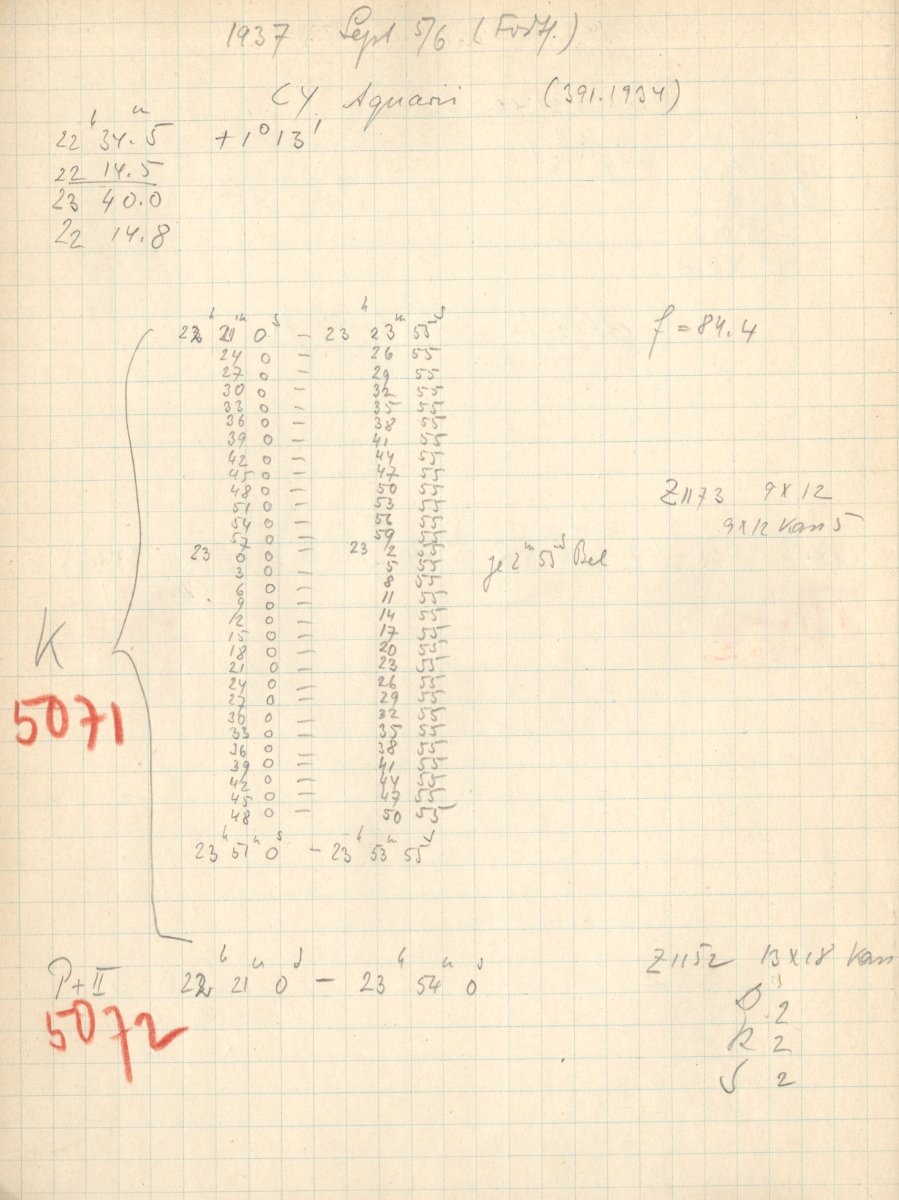 1937 Sept 5/6 (
CY Aquarii (391.1934)
22ʰ 34.ᵐ5 + 1° 13'
22 14.5
23 40.0
22 14.8
22ʰ 21ᵐ 0ˢ – 23ʰ 23ᵐ 55ˢ f = 84.4
24 0 – 26 55
27 0 – 29 55
30 0 – 32 55
33 0 – 35 55
36 0 – 38 55
39 0 – 41 55
42 0 – 44 55
45 0 – 47 55
48 0 – 50 55 Z1173 9x12
51 0 – 53 55
54 0 – 56 55 9x12 Kan 5
57 0 – 59 55
23 0 0 – 23 2 55 je 2ᵐ 55ˢ Bel
3 0 – 5 55
6 0 – 8 55
9 0 – 11 55
12 0 – 14 55
15 0 – 17 55
K 18 0 – 20 55
21 0 – 23 55
24 0 – 26 55
5071 27 0 – 29 55
30 0 – 32 55
33 0 – 35 55
36 0 – 38 55
39 0 – 41 55
42 0 – 44 55
45 0 – 47 55
48 0 – 50 55
23ʰ 51ᵐ 0ˢ – 23ʰ 53ᵐ 55ˢ
Z1152 13x18 Kan
P+II 22ʰ 21ᵐ 0ˢ – 23ʰ 54ᵐ 0ˢ
5072 2
R 2
S 2